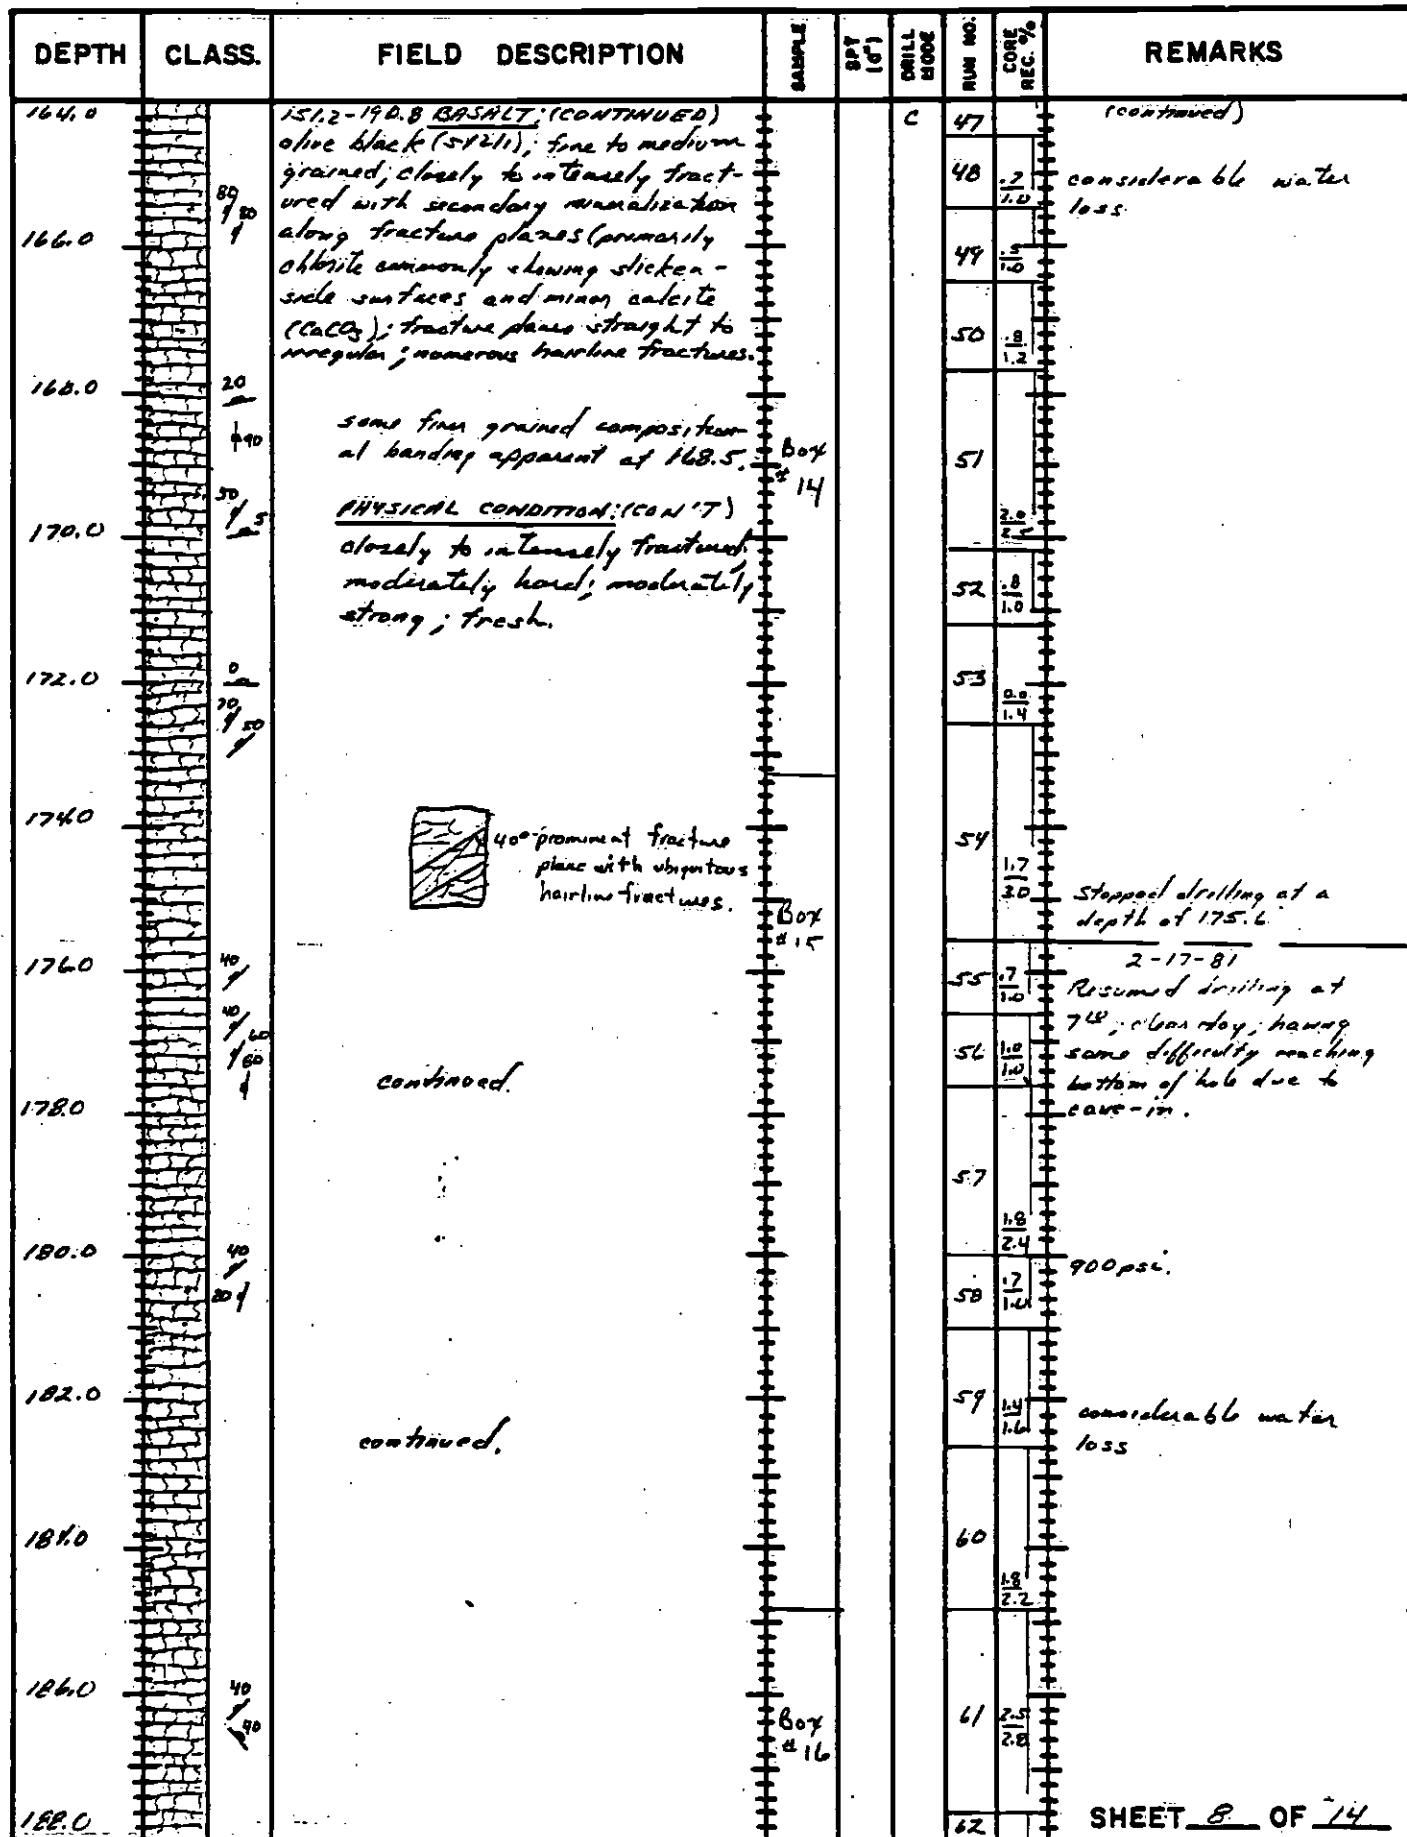 DEPTH CLASS. FIELD DESCRIPTION SAMPLE SPT (6") DRILL MODE RUN NO. CORE REC. % REMARKS
164.0
166.0
168.0
170.0
172.0
174.0
176.0
178.0
180.0
182.0
184.0
186.0
188.0
80
80
20
90
50
5
0
70
50
40
40
60
60
40
80
40
90
151.2-190.8 BASALT; (CONTINUED)
olive black (5Y2/1); fine to medium
grained; closely to intensely fract-
ured with secondary mineralization
along fracture planes (primarily
chlorite commonly showing slicken-
side surfaces and minor calcite
(CaCO3); fracture planes straight to
irregular; numerous hairline fractures.
some finer grained composition-
al banding apparent at 168.5.
PHYSICAL CONDITION: (CON'T)
closely to intensely fractured;
moderately hard; moderately
strong; fresh.
40° prominent fracture
plane with ubiquitous
hairline fractures.
continued.
continued.
Box
# 14
Box
# 15
Box
# 16
C
47
48 .7/1.0
49 .5/1.0
50 .8/1.2
51 2.0/2.5
52 .8/1.0
53 0.0/1.4
54 1.7/3.0
55 .7/1.0
56 1.0/1.0
57 1.8/2.4
58 .7/1.0
59 1.4/1.6
60 1.8/2.2
61 2.5/2.8
62
(continued)
considerable water
loss
Stopped drilling at a
depth of 175.6
2-17-81
Resumed drilling at
clear day; having
some difficulty reaching
bottom of hole due to
cave-in.
900 psi.
considerable water
loss
SHEET 8 OF 14